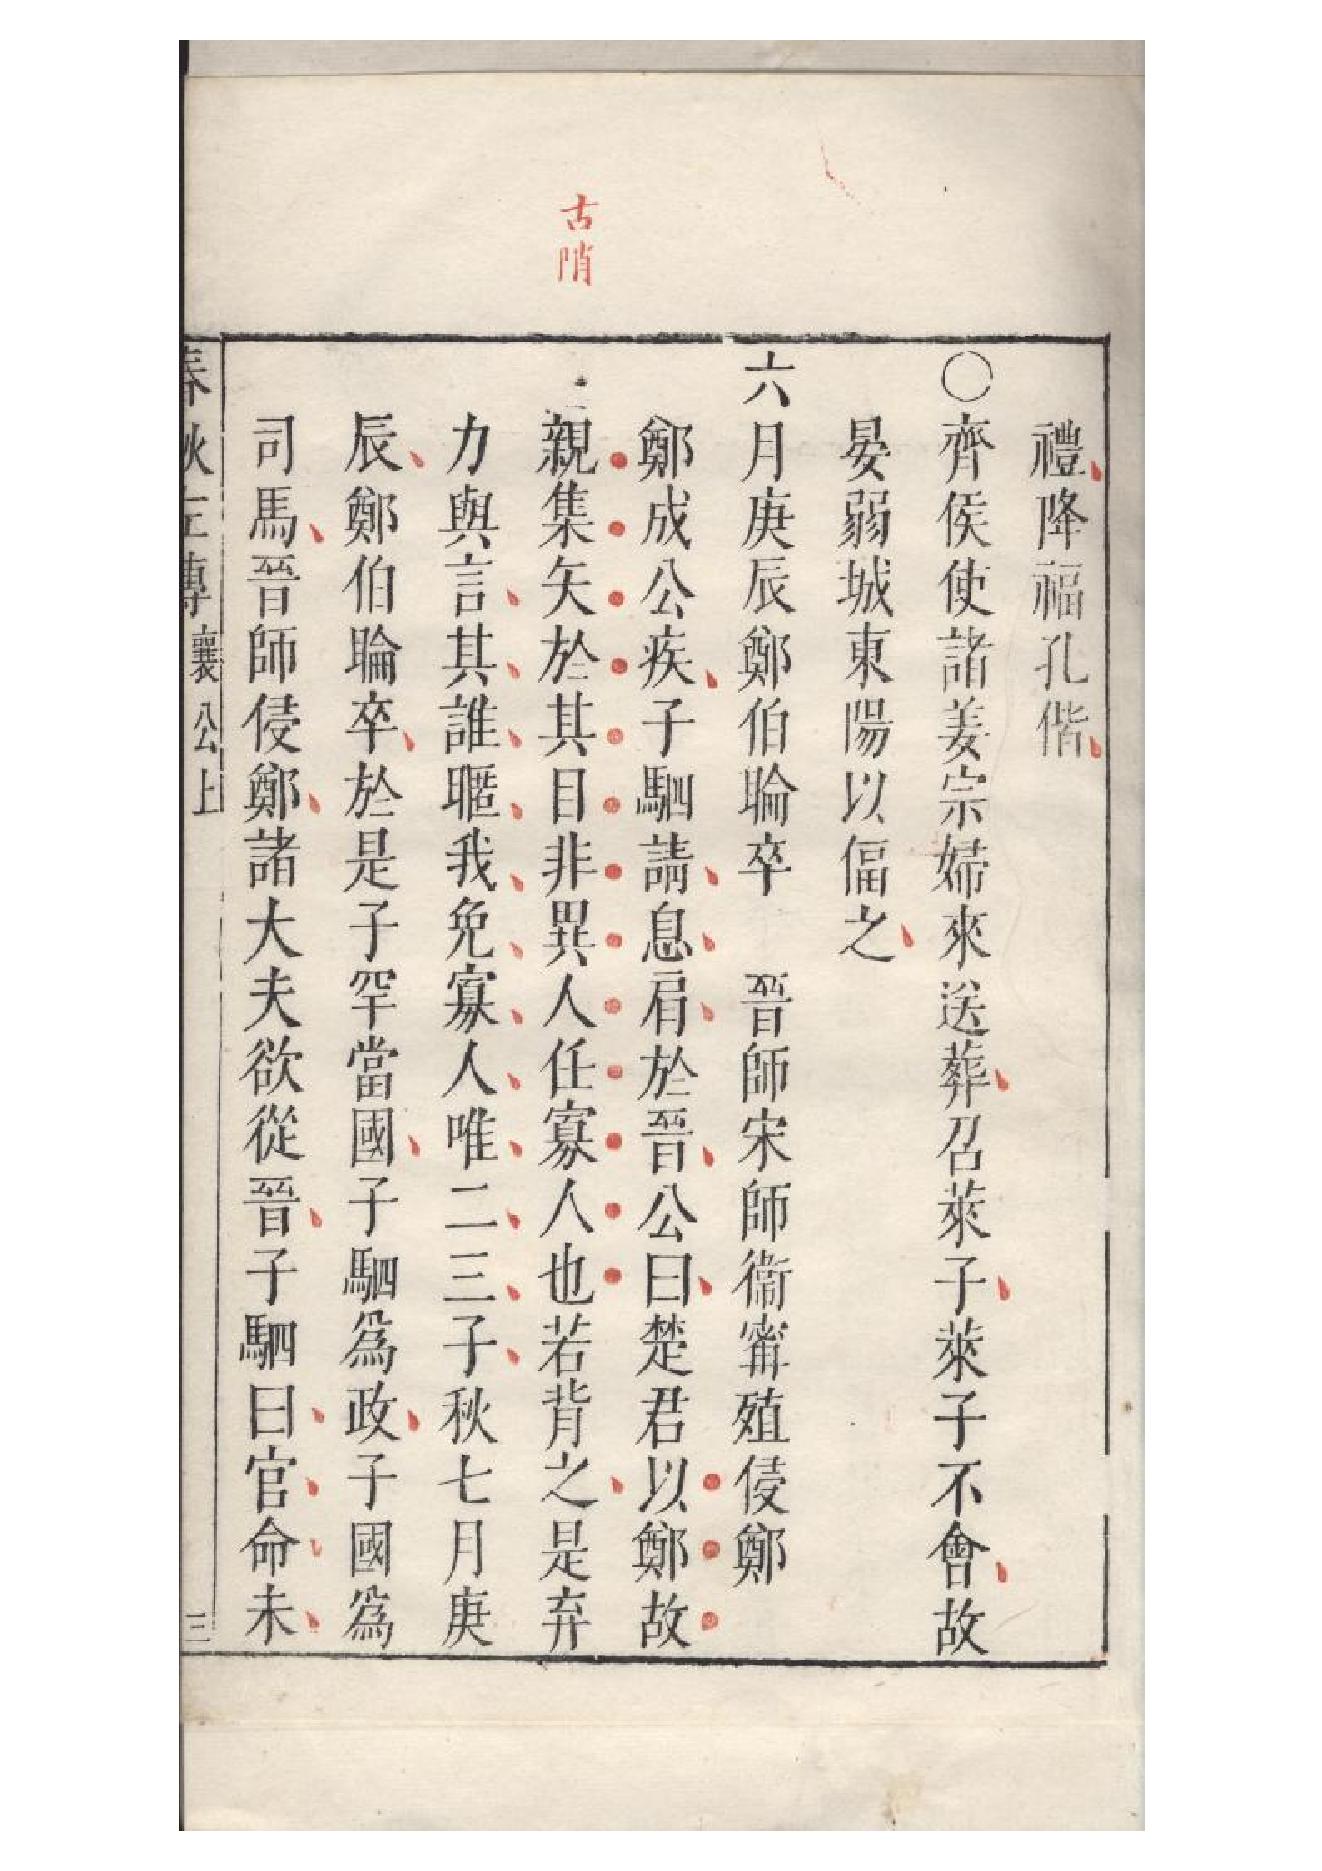 古階
禮降福孔偕
〇齊侯使諸姜宗婦來送葬召萊子萊子不會故
晏弱城東陽以偪之
六月庚辰鄭伯睔卒　晉師宋師衞甯殖侵鄭
鄭成公疾子駟請息肩於晉公曰楚君以鄭故
親集矢於其目非異人任寡人也若背之是弃
力與言其誰暱我免寡人唯二三子秋七月庚
辰鄭伯睔卒於是子罕當國子駟爲政子國爲
司馬晉師侵鄭諸大夫欲從晉子駟曰官命未
春秋左傳 襄公上 三